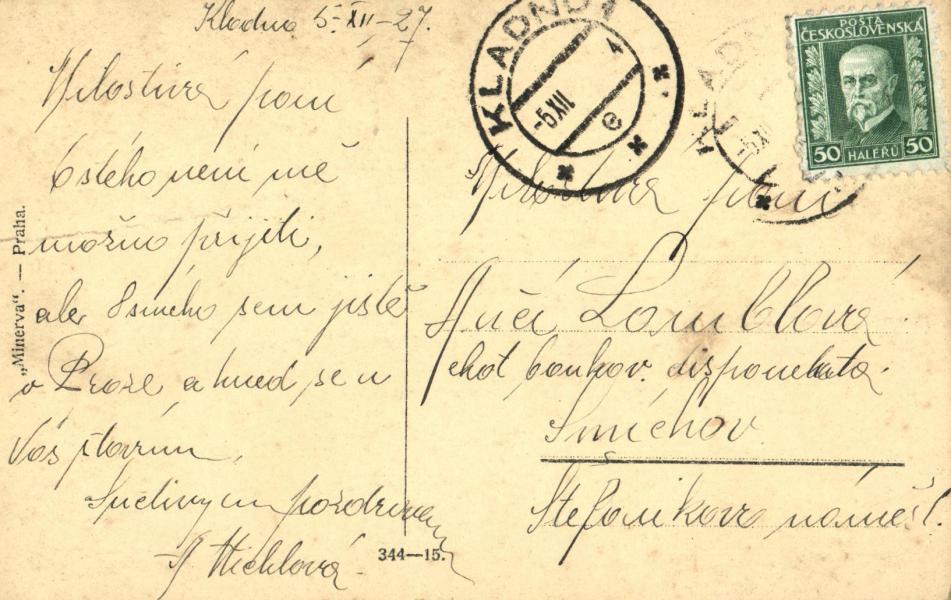 Kladno 5-XII-27.
Milostivá paní
6stého není mě
možno přijíti,
ale 8smého sem jistě
v Praze a hned se u
Vás stavím,
Srdečným pozdravem
Michlová
„Minerva“. — Praha.
344—15.
KLADNO 1
-6.XII
e
KLADNO
-6.XII
POŠTA
ČESKOSLOVENSKÁ
50 HALÉŘŮ 50
Milostivá paní
Lamblová
choť bankov. disponenta.
Smíchov
Štefanikovo náměstí.